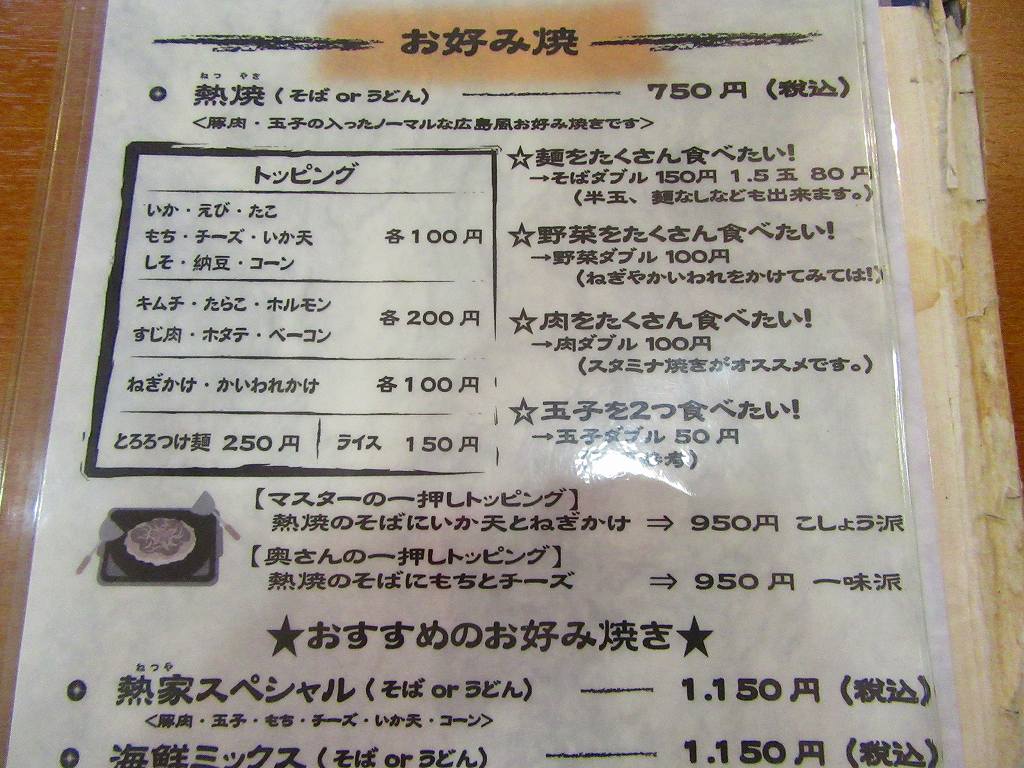 お好み焼
ねつ やき
熱焼(そば or うどん) 750円(税込)
<豚肉・玉子の入ったノーマルな広島風お好み焼きです>
トッピング
いか・えび・たこ
もち・チーズ・いか天 各100円
しそ・納豆・コーン
キムチ・たらこ・ホルモン
すじ肉・ホタテ・ベーコン 各200円
ねぎかけ・かいわれかけ 各100円
とろろつけ麺 250円 ライス 150円
☆麺をたくさん食べたい!
→そばダブル 150円 1.5玉 80円
(半玉、麺なしなども出来ます。)
☆野菜をたくさん食べたい!
→野菜ダブル 100円
(ねぎやかいわれをかけてみては!)
☆肉をたくさん食べたい!
→肉ダブル 100円
(スタミナ焼きがオススメです。)
☆玉子を2つ食べたい!
→玉子ダブル 50円
【マスターの一押しトッピング】
熱焼のそばにいか天とねぎかけ ⇒ 950円 こしょう派
【奥さんの一押しトッピング】
熱焼のそばにもちとチーズ ⇒ 950円 一味派
★おすすめのお好み焼き★
ねつや
熱家スペシャル(そば or うどん) 1.150円(税込)
<豚肉・玉子・もち・チーズ・いか天・コーン>
海鮮ミックス(そば or うどん) 1.150円(税込)